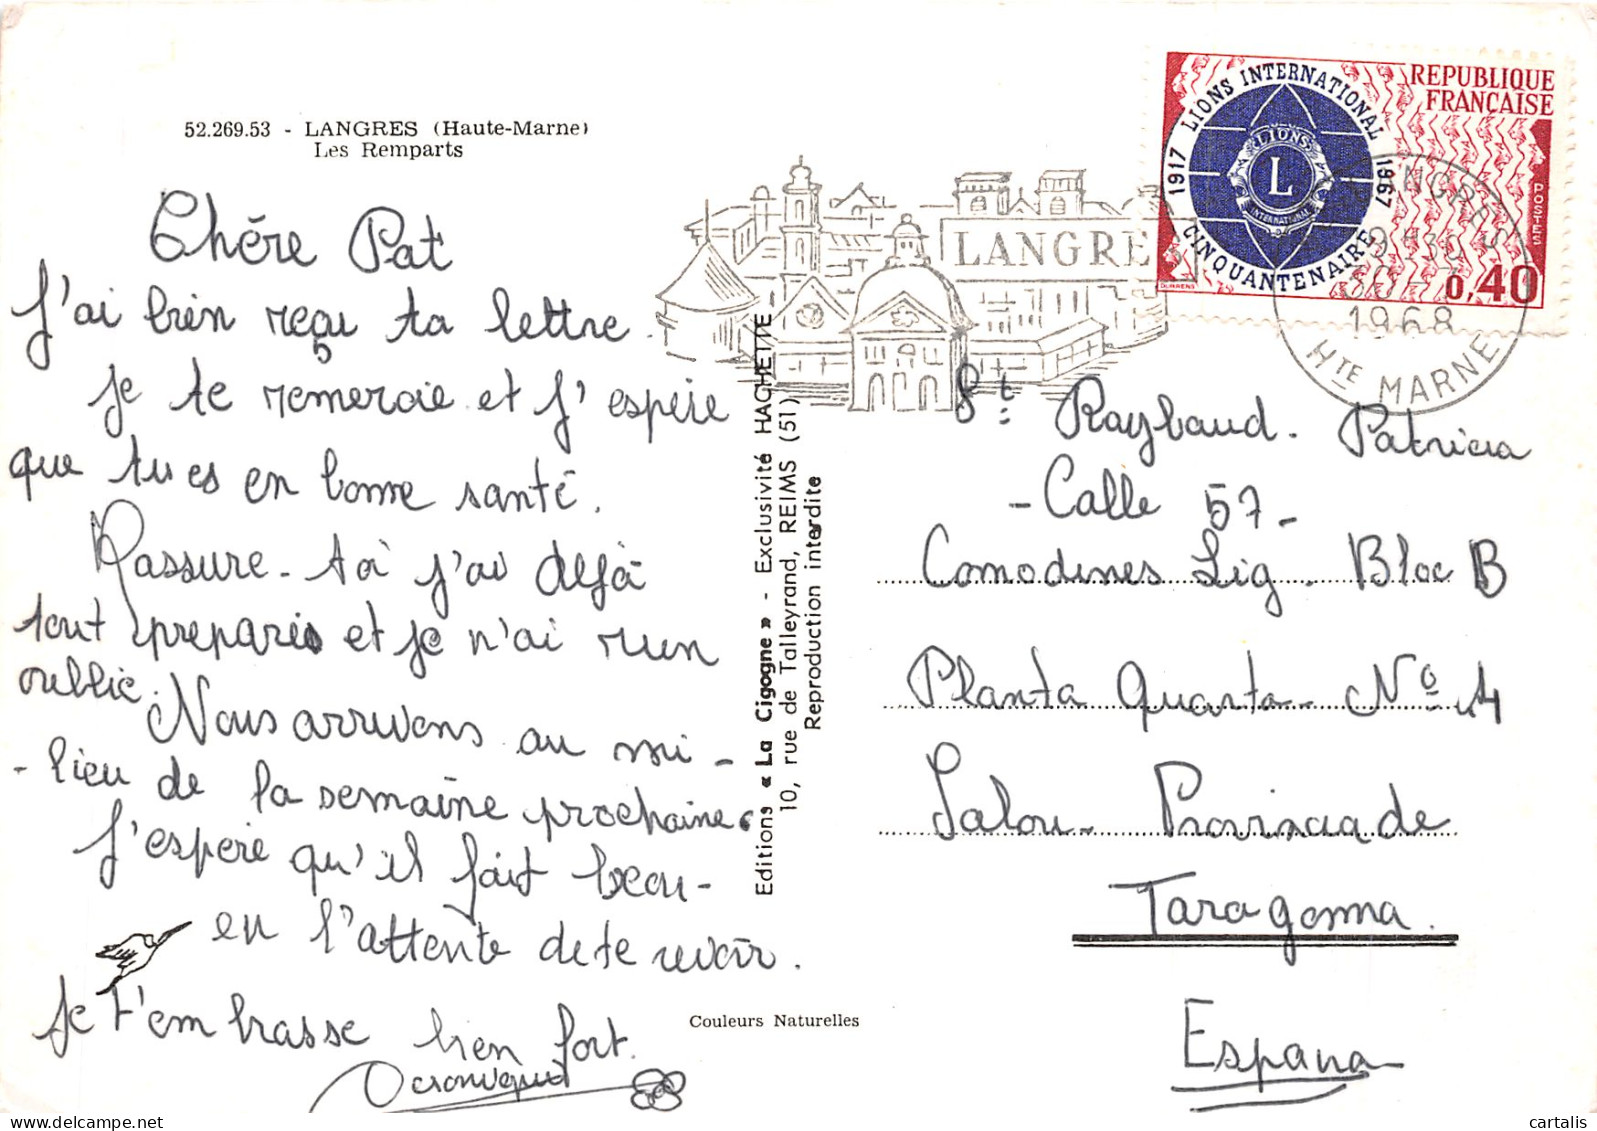 52.269.53 - LANGRES (Haute-Marne)
Les Remparts
Chère Pat
J'ai bien reçu ta lettre.
je te remercie et j'espère
que tu es en bonne santé.
Rassure-toi j'ai déjà
tout preparé et je n'ai rien
oublié.
Nous arrivons au mi-
-lieu de la semaine prochaine.
J'espère qu'il fait beau-
en l'attente de te revoir.
Je t'embrasse bien fort.
Veronique
Couleurs Naturelles
Editions « La Cigogne » - Exclusivité HACHETTE
10, rue de Talleyrand, REIMS (51)
Reproduction interdite
LANGRE
1917 LIONS INTERNATIONAL 1967
CINQUANTENAIRE
LIONS
L
INTERNATIONAL
REPUBLIQUE
FRANÇAISE
POSTES
0,40
1968
HTE MARNE
Raybaud. Patricia
- Calle 57 -
Comodines Lig. Bloc B
Planta Quarta - Nº 4
Salou - Provincia de
Taragonna.
Espana
cartalis